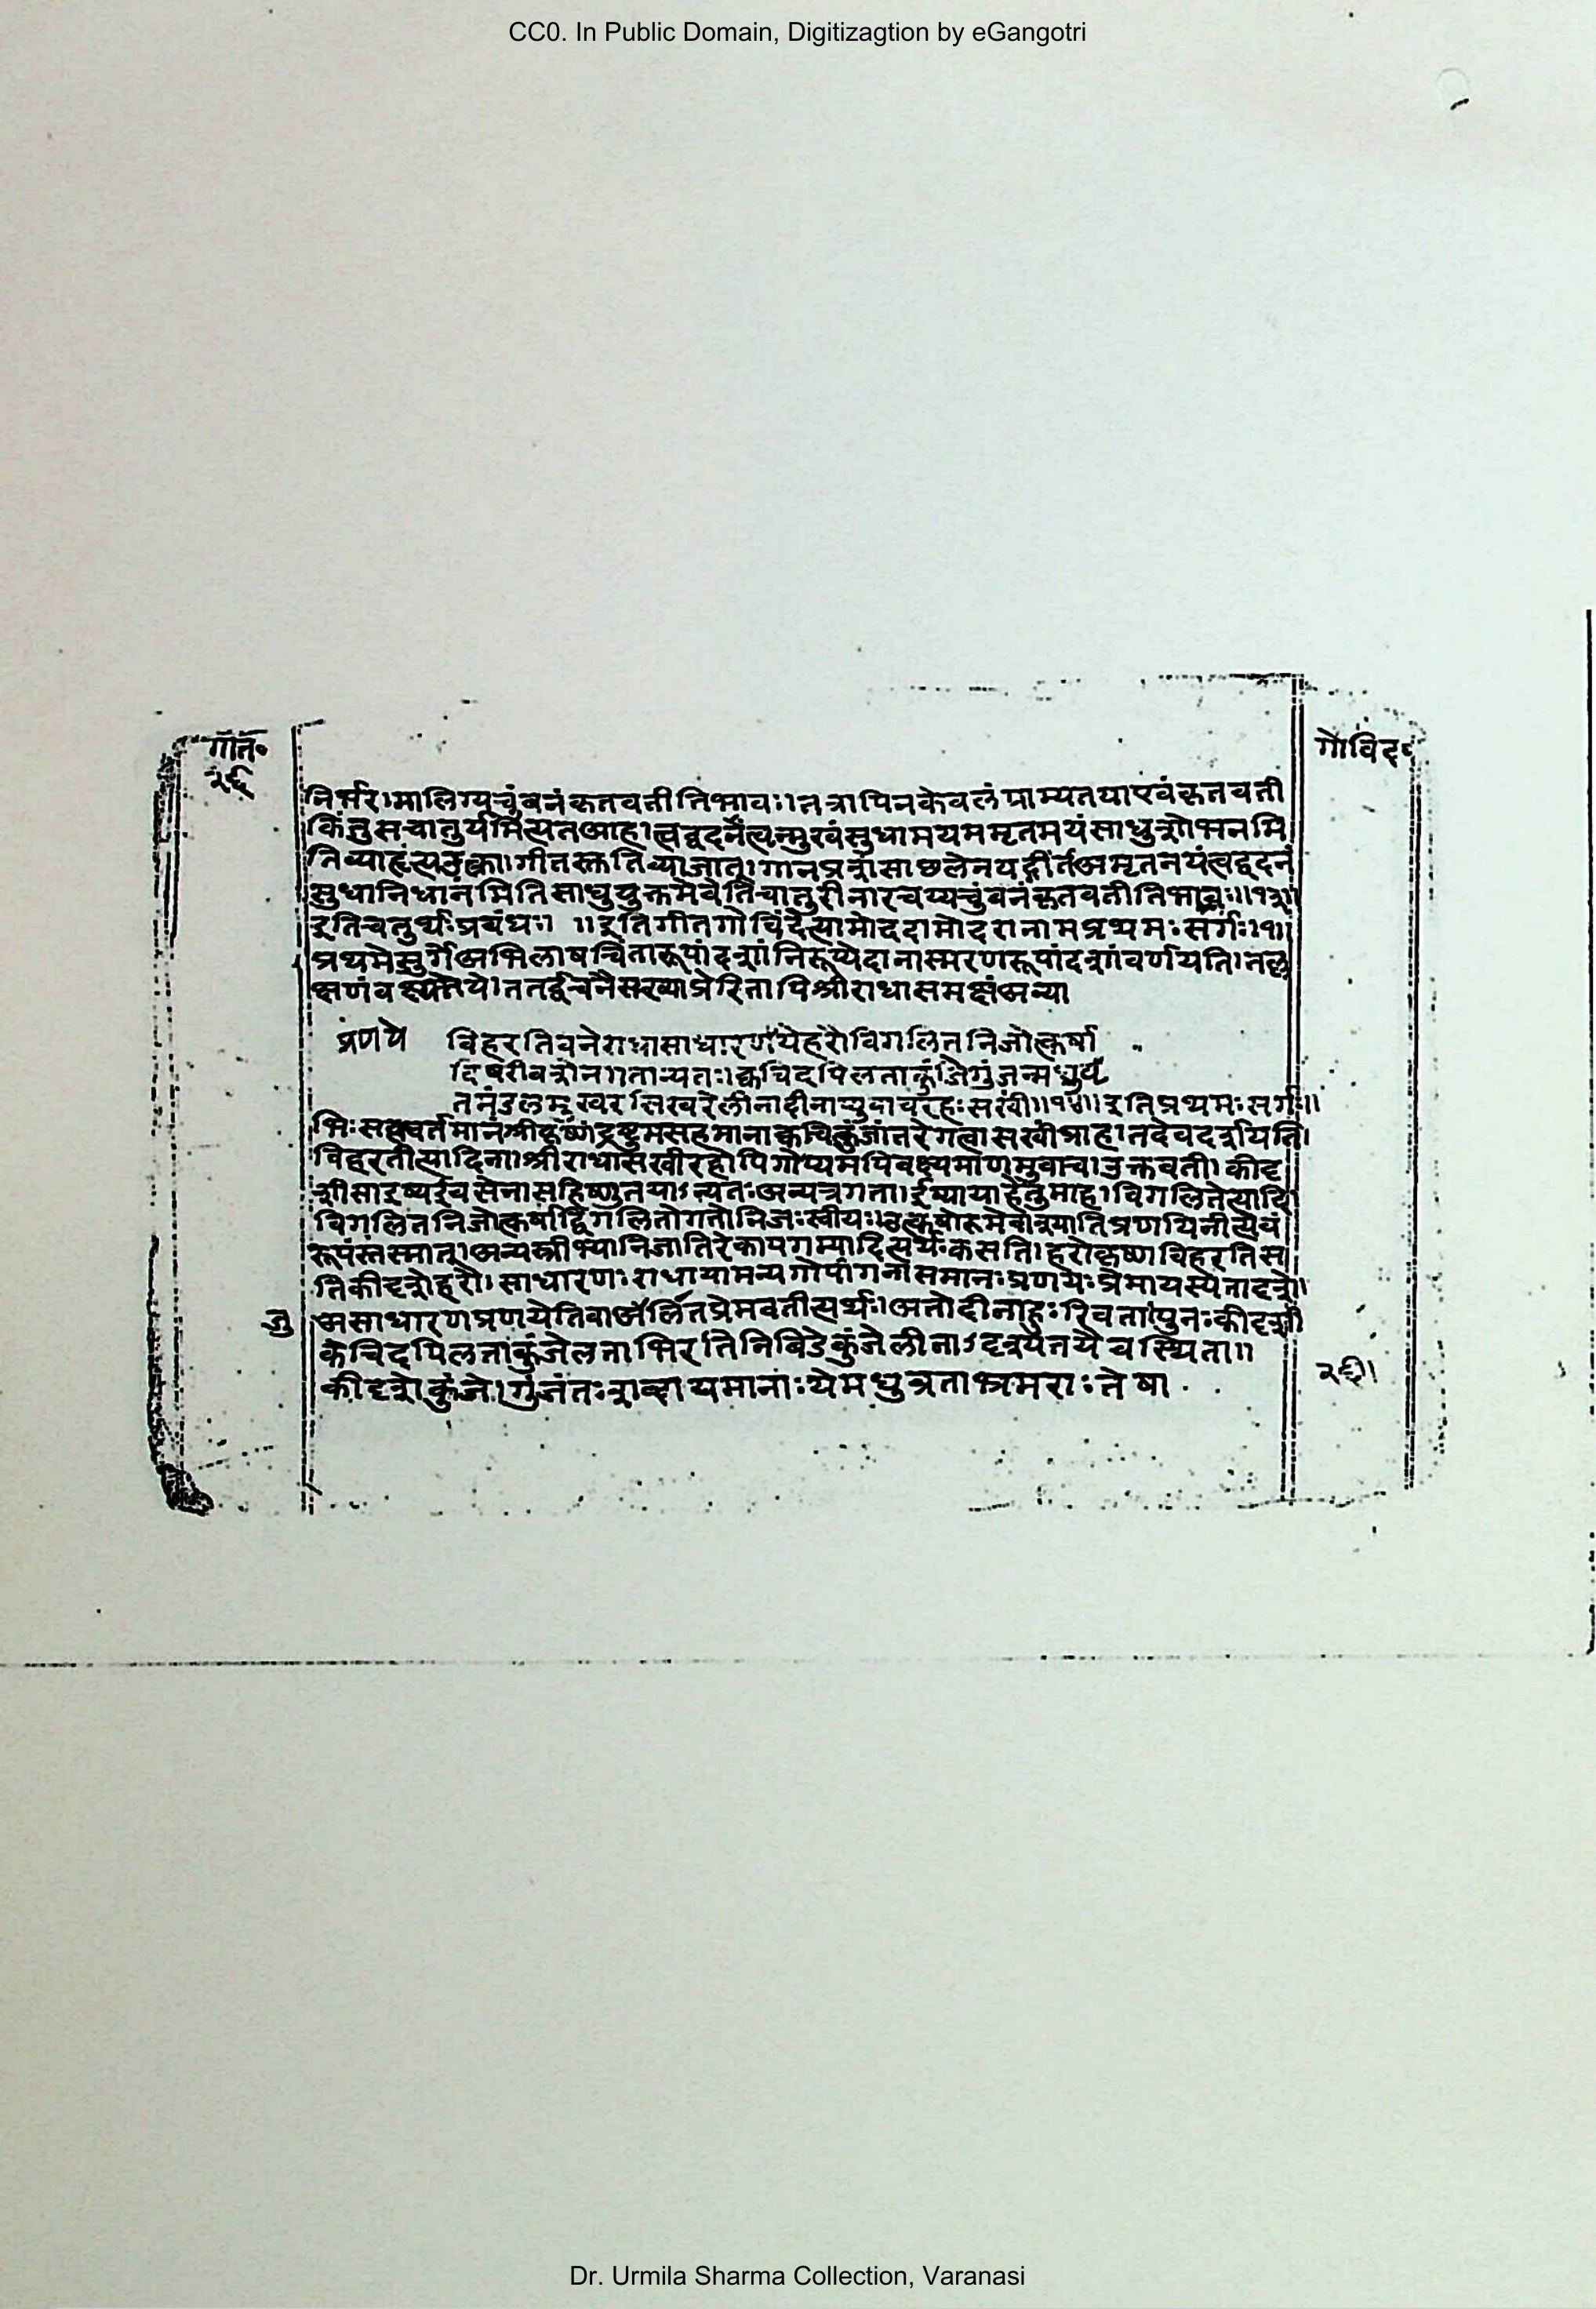 CC0. In Public Domain, Digitizagtion by eGangotri
गीत॰
गोविंद॰
२६
निर्भर।मालिग्यचुंबनंकृतवतीतिभावः।तत्रापिनकेवलंग्राम्यतयाएवंकृतवती
किंतुसचातुर्यमित्यतआहात्वद्वदनंत्वन्मुखंसुधामयममृतमयंसाधुशोभनमि
तिव्याहृत्यउक्त्वा।गीतस्तुतिव्याजात्।गानप्रशंसाछलेनयद्गीतंअमृतनयंत्वद्वदनं
सुधानिधानमितिसाधुयुक्तमेवेतिचातुरीनारचय्यचुंबनंकृतवतीतिभावः॥१३॥
इतिचतुर्थःप्रबंधः। ॥इतिगीतगोविंदेसामोददामोदरोनामप्रथमःसर्गः।१॥
प्रथमेसर्गेअभिलाषचिंतारूपांदशांनिरूप्येदानींस्मरणरूपांदशांवर्णयति।तल्ल
क्षणंवक्ष्यते सख्याप्रेरितापिश्रीराधासमक्षंअन्या
प्रणये विहरतिवनेराधासाधारणयेहरौविगलितनिजोत्कर्षा
दिषरीवशेन॥तान्यतः।क्वचिदपिलताकुंजेगुंजन्मधुव्र
तमंडलमुखरशिखरेलीनादीनाप्युवाचरहःसखीं॥१४॥इतिप्रथमःसर्गः॥
भिःसहवर्तमानंश्रीकृष्णंद्रष्टुमसहमानाक्वचित्कुंजांतरेगत्वासखींप्राह।तदेवदर्शयति।
विहरतीत्यादिना।श्रीराधासखींरहोपिगोप्यमपिवक्ष्यमाणमुवाच।उक्तवती।कीदृ
शीसा ईर्ष्या सहिष्णुतयाऽन्यतःअन्यत्रगता।ईर्ष्यायाहेतुमाह।विगलितेत्यादि
विगलितनिजोत्कर्षाद्विगलितोगतोनिजःस्वीयः।उत्कर्षो प्रणयिनीत्येवं
रूपंस्तस्मात्।अन्यस्त्रीभ्योनिजातिरेकापगम्यादित्यर्थःकसति।हरौकृष्णेविहरतिस
तिकीदृशेहरौ।साधारणःराधायामन्यगोपांगनासमानःप्रणयःप्रेमायस्येतादृशे।
जु असाधारणप्रणयेतिवाअर्जितप्रेमवतीत्यर्थः।अतोदीनादुःखिता।पुनःकीदृशी
क्वचिदपिलताकुंजेलताभिरतिनिबिडेकुंजेलीनाऽदृश्यतयैवस्थिता॥
कीदृशेकुंजे।गुंजंतःशब्दायमानाःयेमधुव्रताभ्रमराःतेषां
२६।
Dr. Urmila Sharma Collection, Varanasi